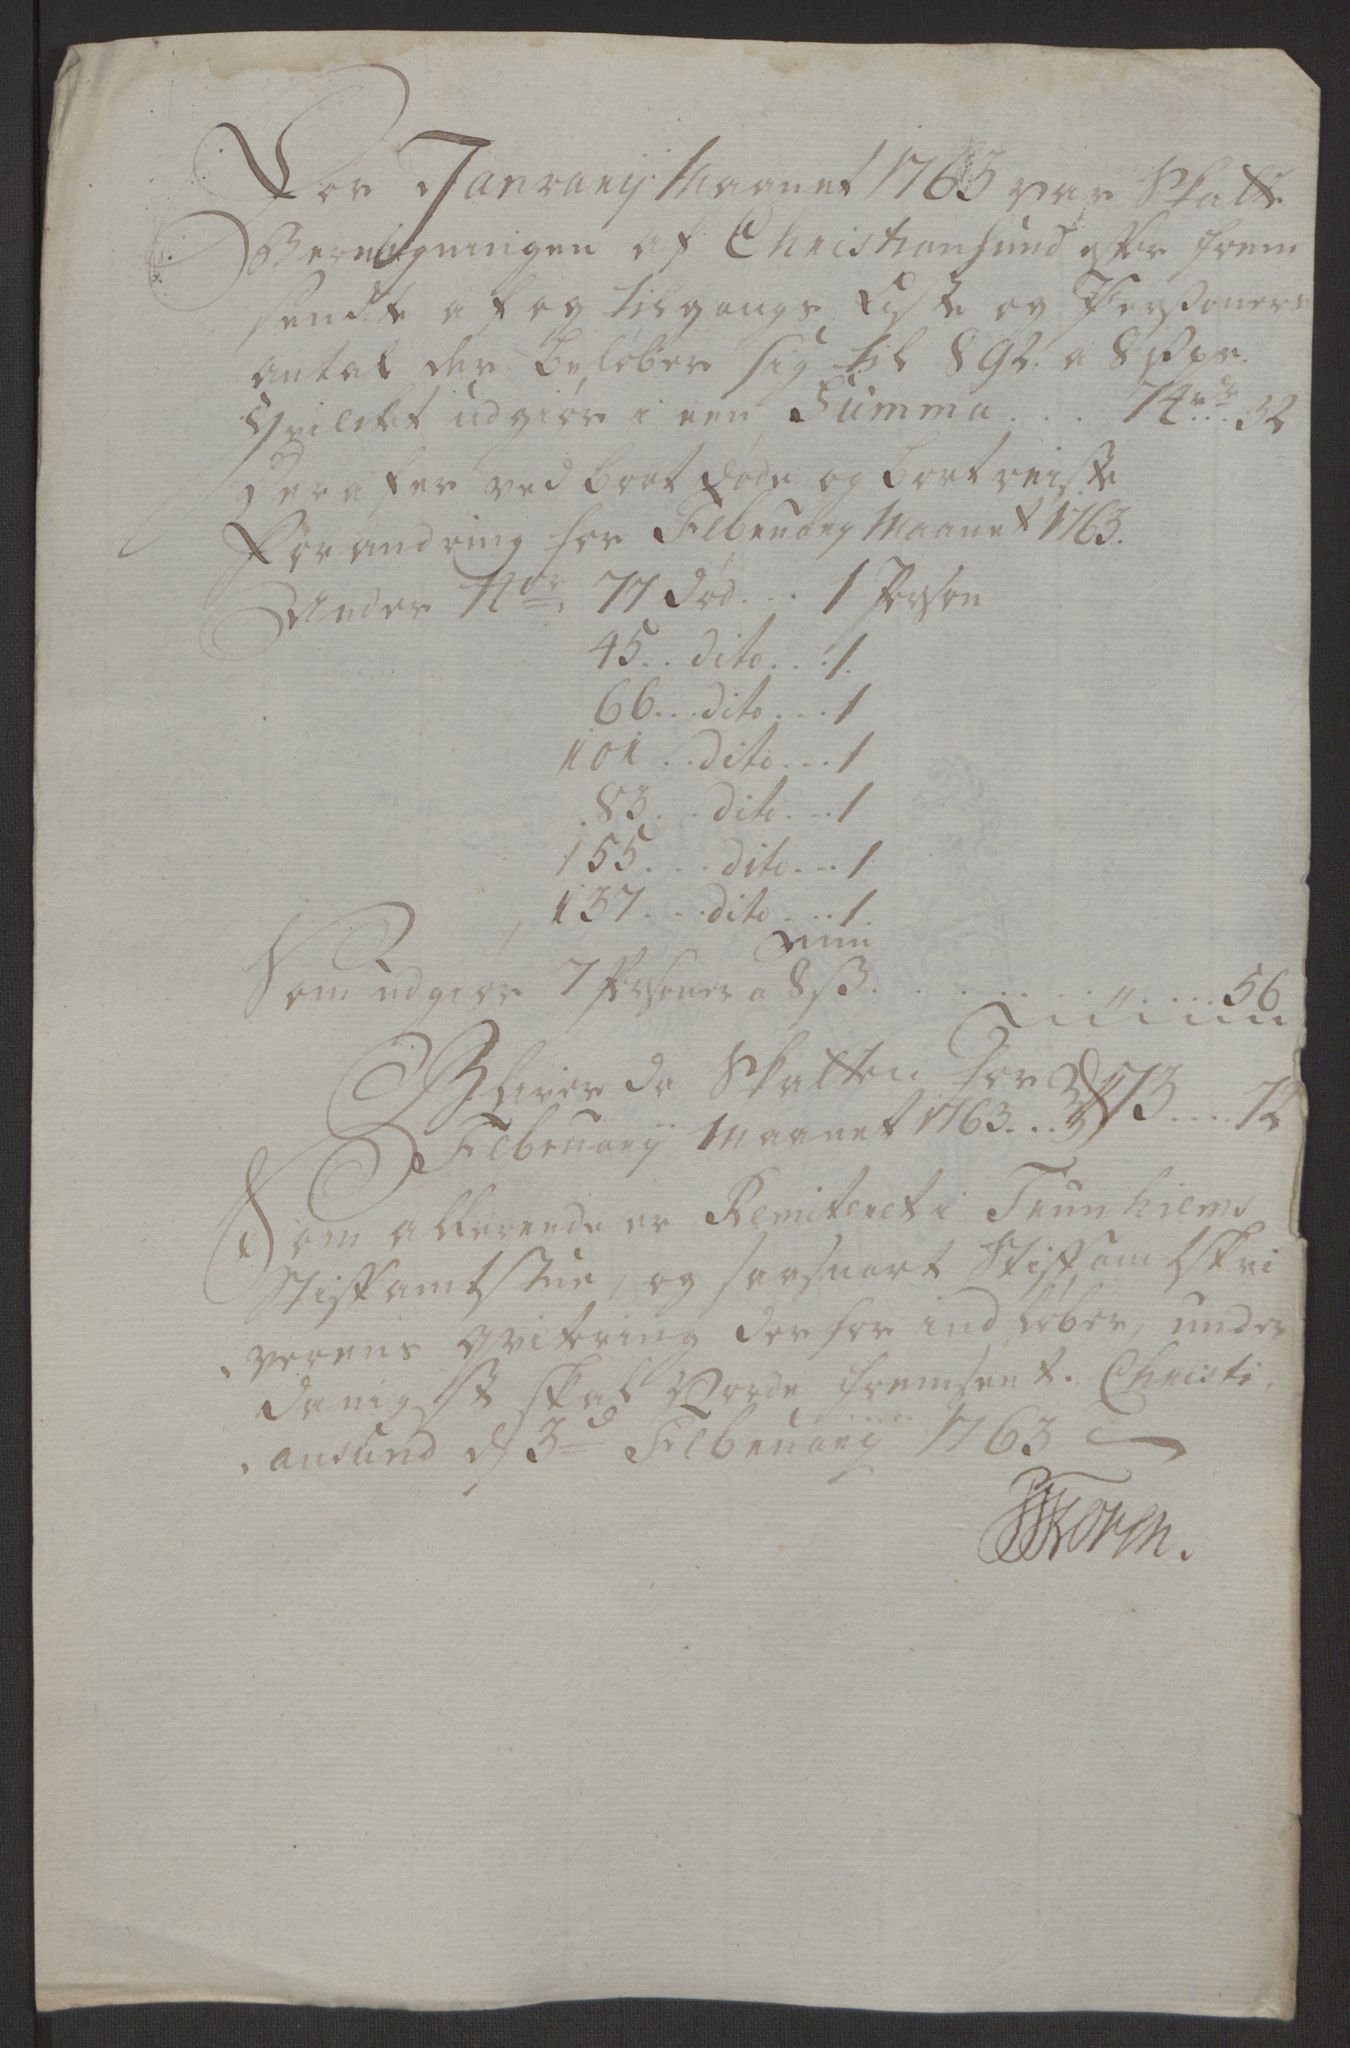 For Janrarij Maanet 1763 var Skatte
Beregningen af Christiansund efter frem
sendte af og tilgangs Liste og Personers
antal der beløber sig til 892. a 8 s pr.
qvilitet udgiør i een Summa . . . 74 rdr 32
Derefter ved bort døde og bortreiste
Forandring for Februarij Maanet 1763.
Under Nor. 77 død . . . 1 Person
45 . . dito . . . 1.
66 . . . dito . . . 1
101 . . dito . . . 1
83 . . . dito . . . 1
155 . . . dito . . . 1
137 . . . dito . . . 1.
Som udgiør 7 Personer a 8 s . . . . . . . 56
Bliver da Skatten for
Februarij Maanet 1763 . . . 73 . . . . 72
Som allerede er Remiteret i Trunhiems
Stiftamtstue, og saasnart Stiftamtskri
verens qvitering derfor indløber, under
danigst skal Vorde fremsent. Christi
ansund d 3d Februarij 1763